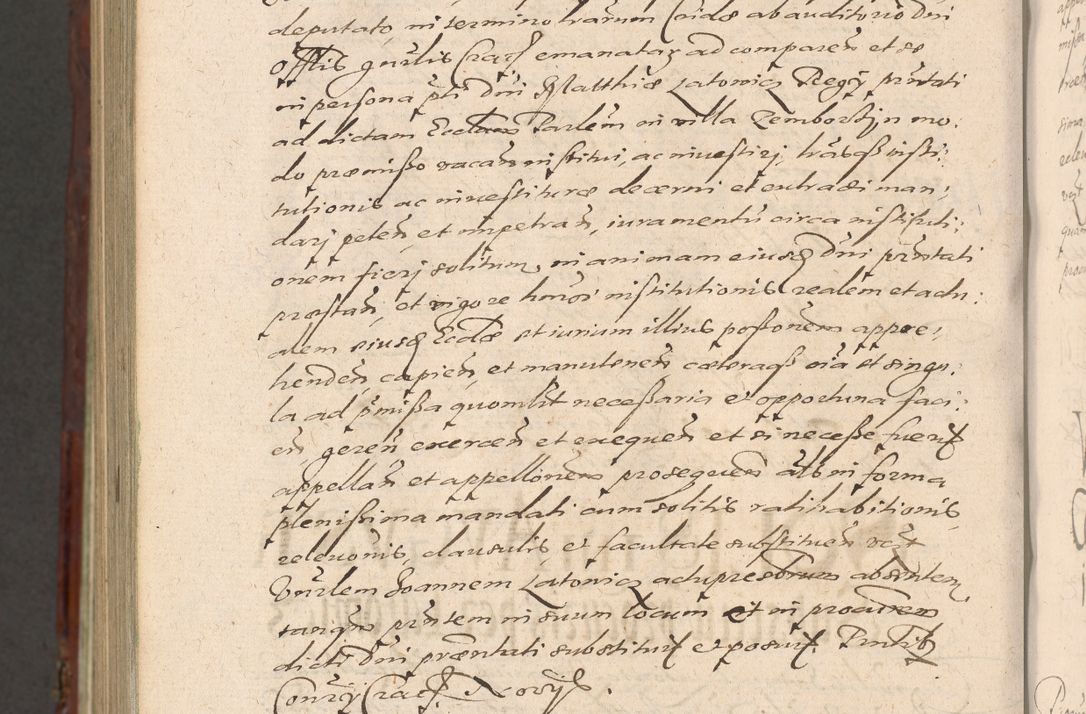 deputato, in termino harum Cridæ ab auditorio Dni
Offlis gnrlis Crac emanatar ad comparen et se
in persona pti Dni Matthiæ Latonicz Regij pntati
ad dictam Ecclam Parlem in villa Remborszyn mo:
do præmisso vacan institui, ac investiri, trasq insti:
tutionis ac investituræ decerni et extradi man:
dari peten, et impetran, iuramentu circa instituti:
onem fieri solitum, in animam eiusd Dni pntati
præstan, et vigore hmoi institutionis realem et actu:
alem eiusd Ecclæ et iurium illius possonem appre:
henden, capien, et manutenen cæteraq oia et singu:
la ad pmissa quomlt necessaria et opportuna faci:
en, geren exercen et exequen et si necesse fuerit
appellan et appellonem prosequen als in forma
plenissima mandati cum solitis ratihabitionis,
relevonis, clausulis, et facultate substituen
Vnrlem Joannem Latonicz adu absentem
tanqm pntem in suum locum et in procurem
dicti Dni præntati substituit et posuit. Pntib
Crac